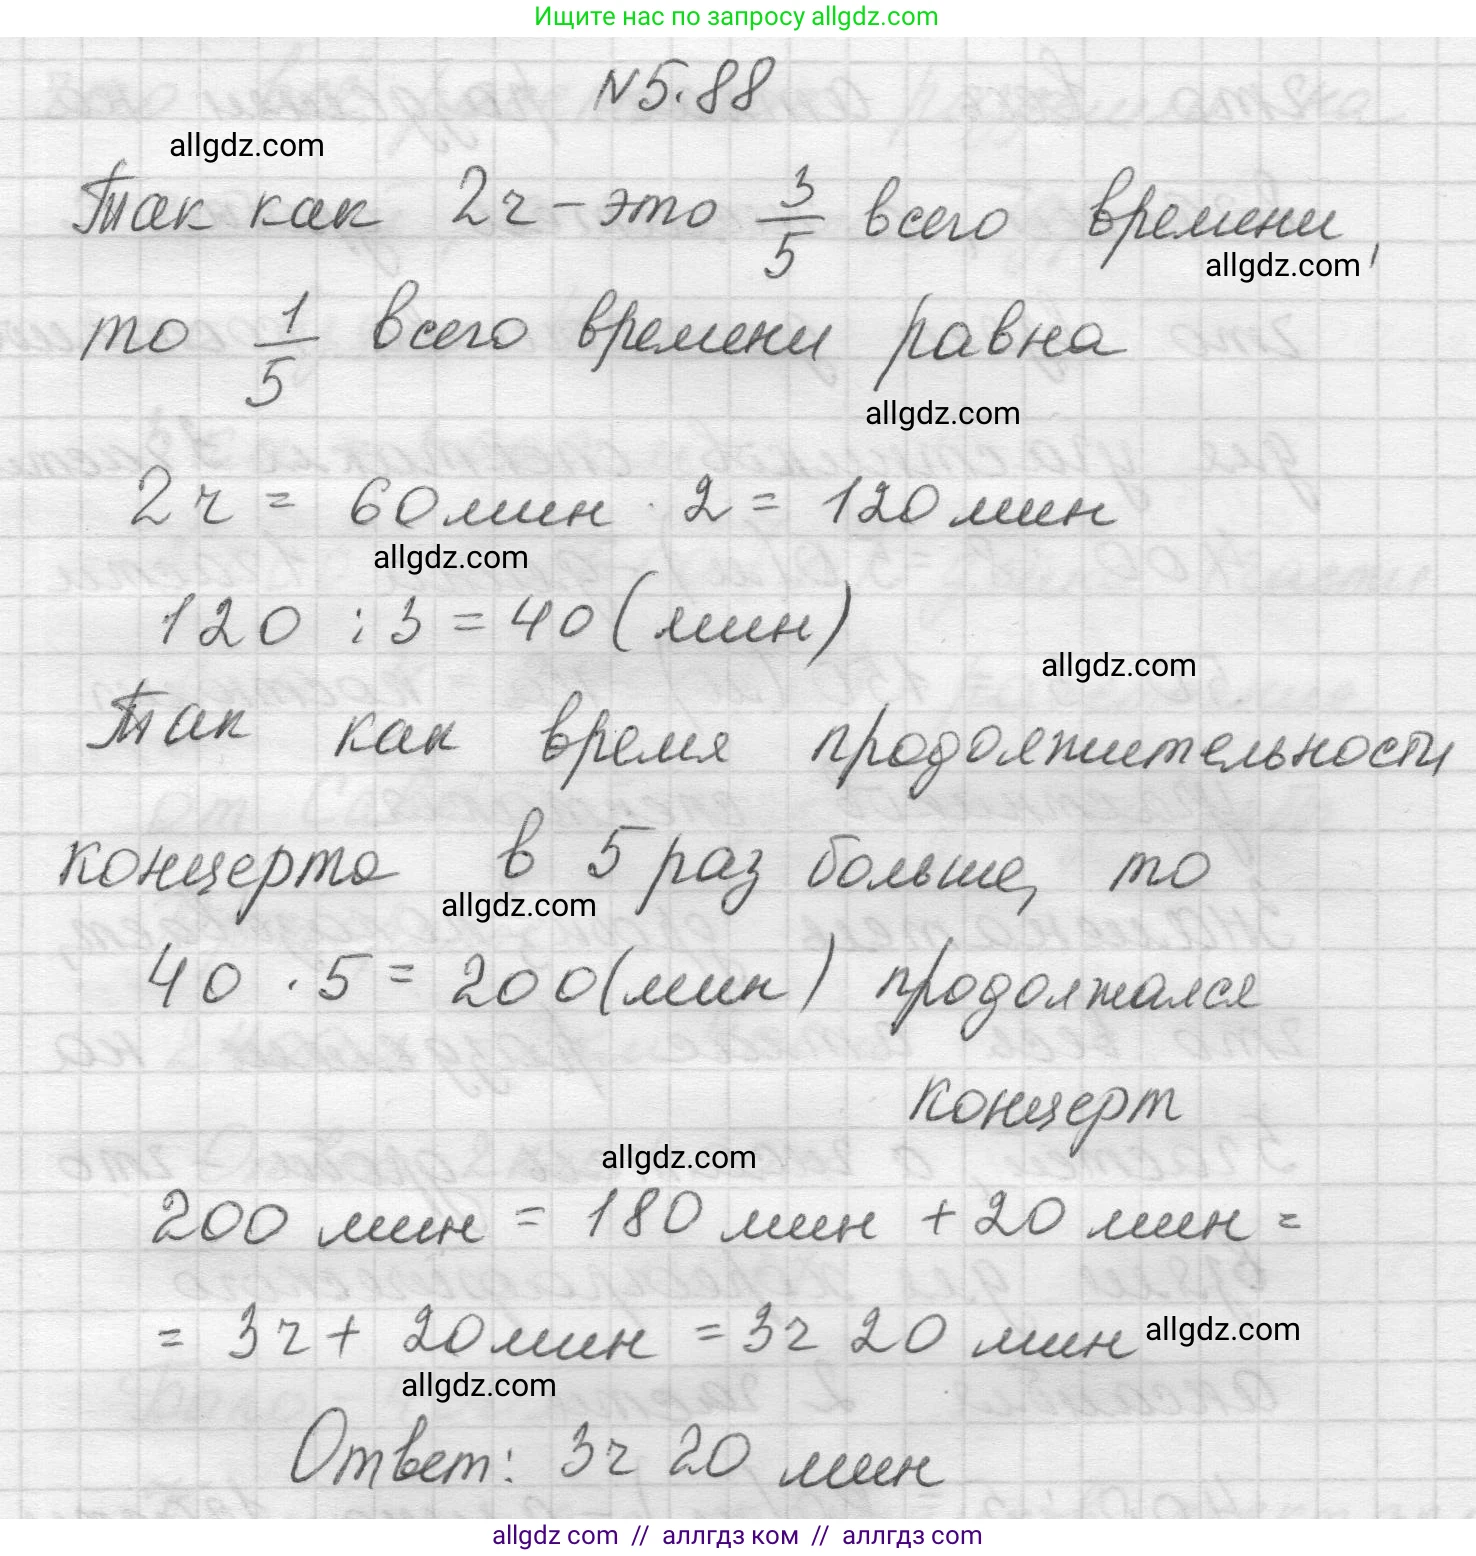 Ищите нас по запросу allgdz.com
N5.88
allgdz.com
Так как 2ч – это 3/5 всего времени,
allgdz.com
то 1/5 всего времени равна
allgdz.com
2ч = 60 мин · 2 = 120 мин
allgdz.com
120 : 3 = 40 (мин)
allgdz.com
Так как время продолжительности
концерта в 5 раз больше, то
allgdz.com
40 · 5 = 200 (мин) продолжался
концерт
allgdz.com
200 мин = 180 мин + 20 мин =
= 3ч + 20 мин = 3ч 20 мин
allgdz.com
allgdz.com
Ответ: 3ч 20 мин
allgdz com // аллгдз ком // аллгдз com